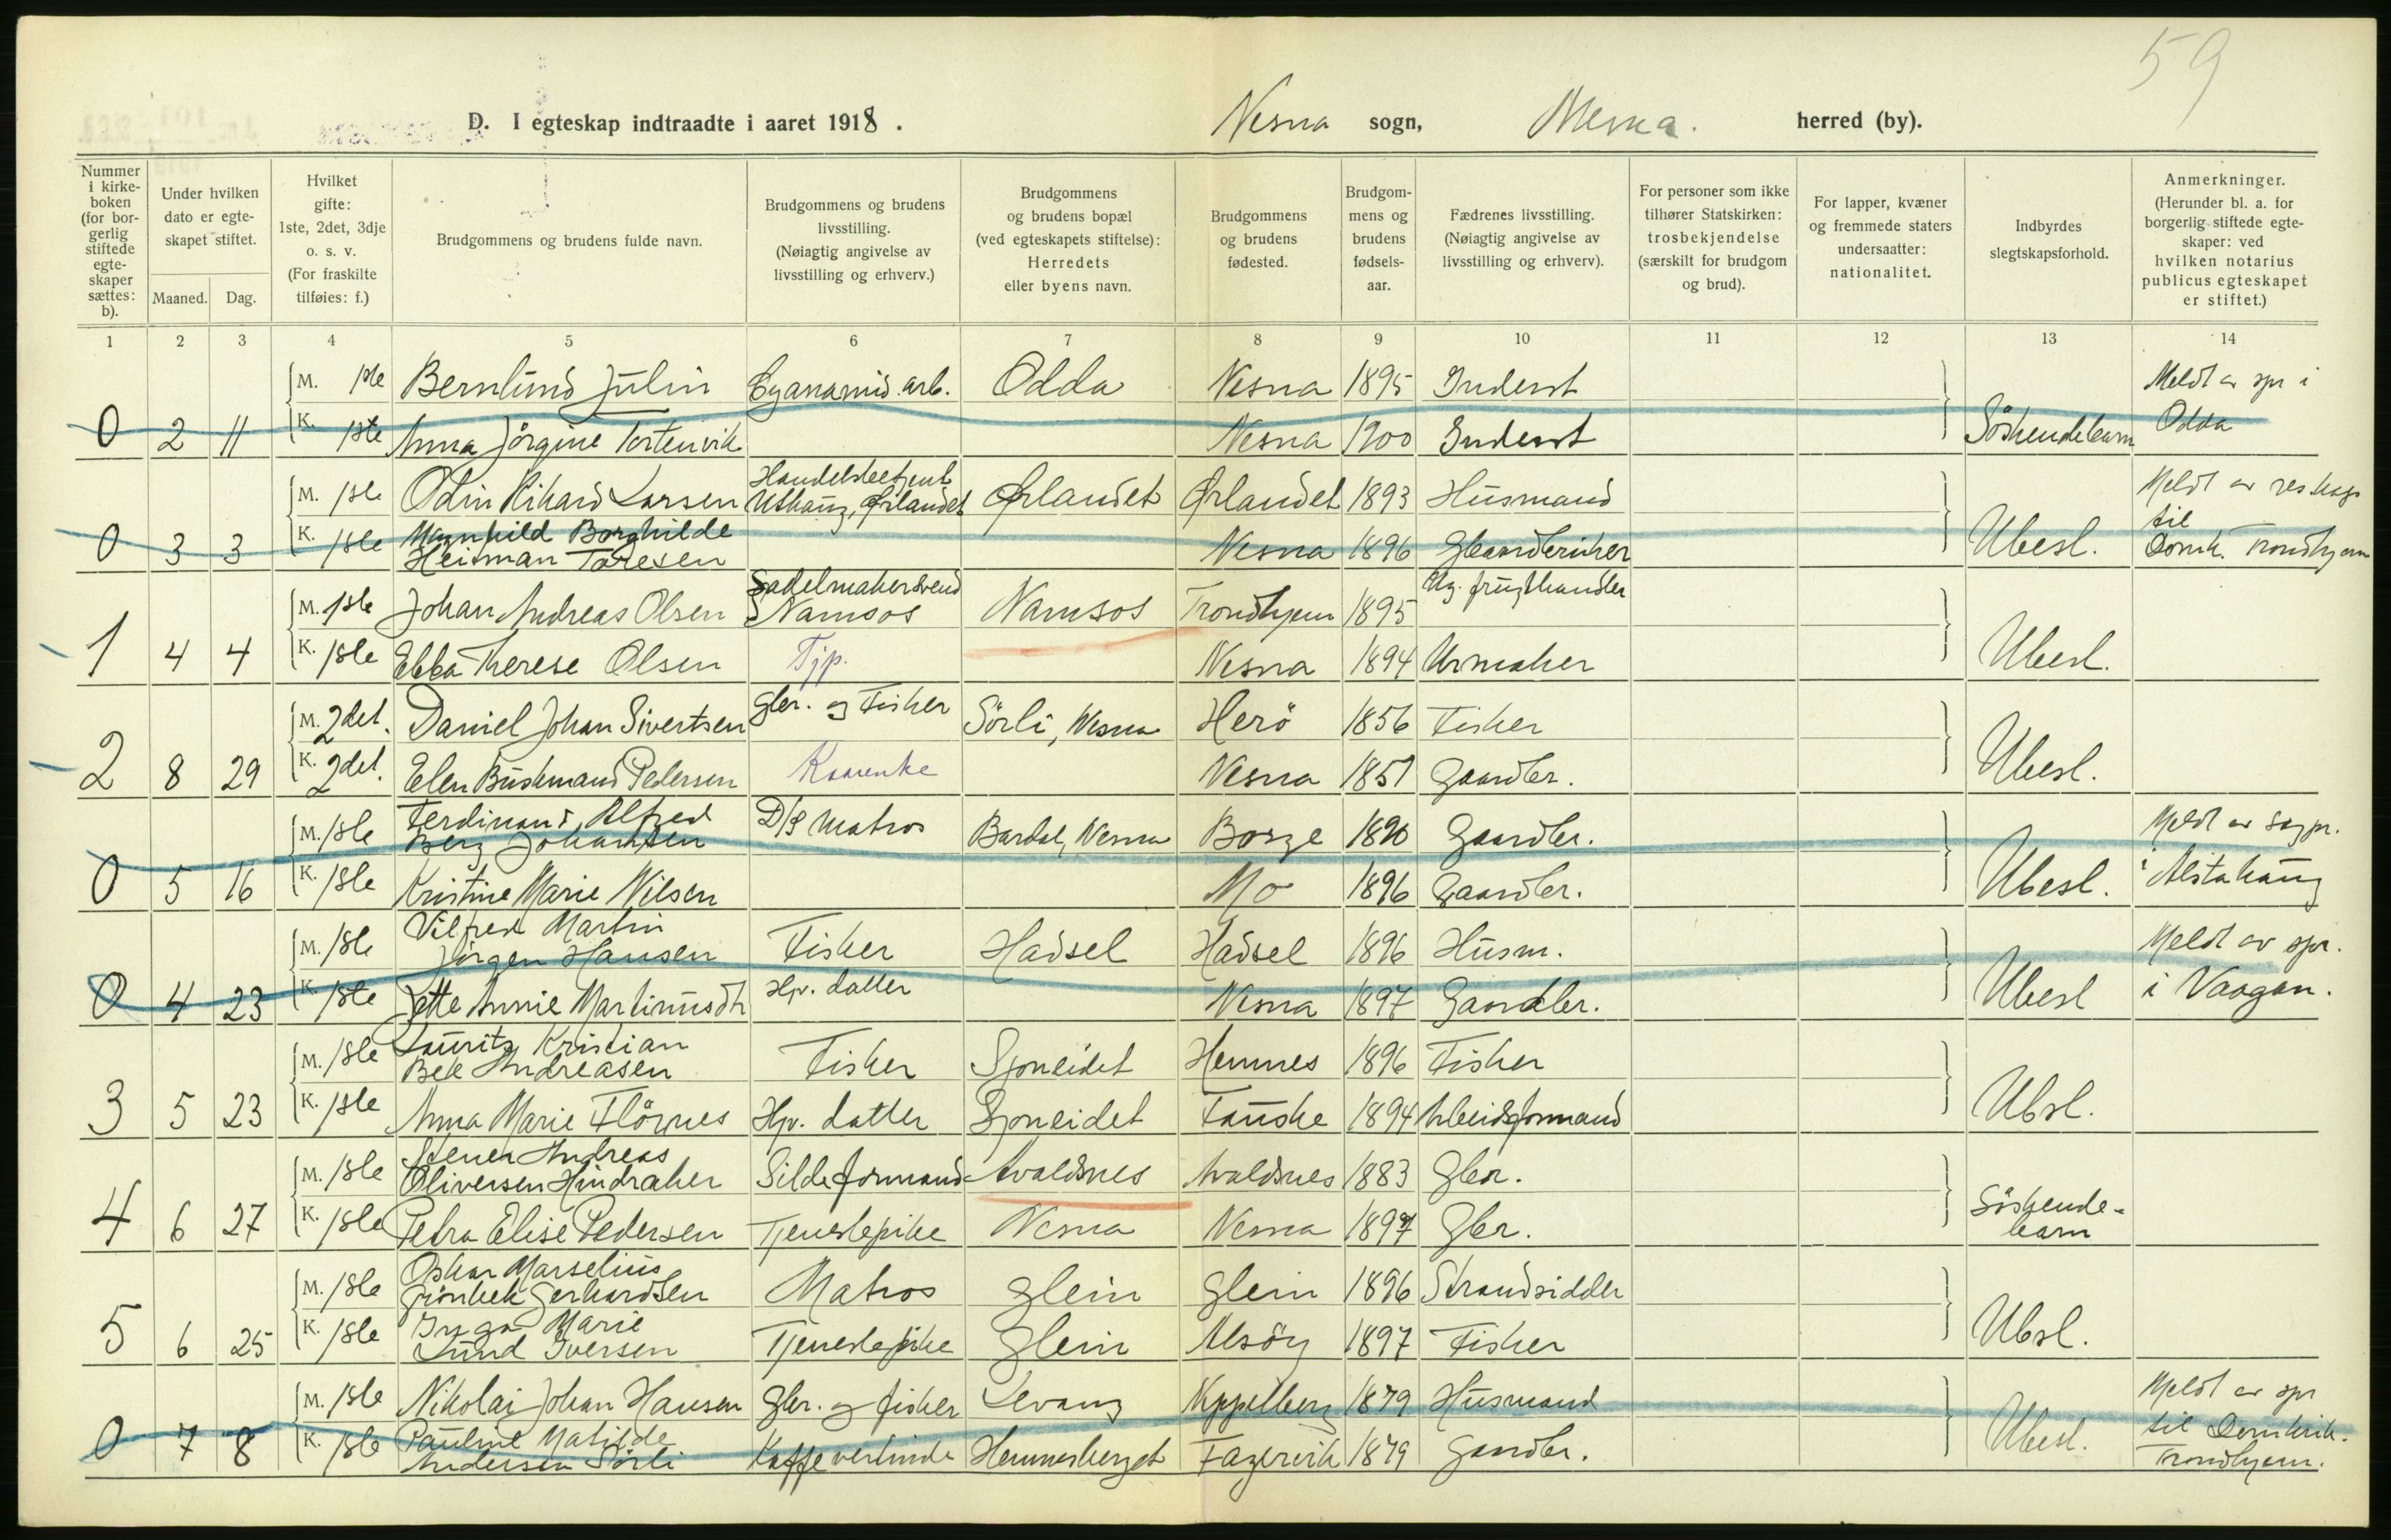 59
D. I egteskap indtraadte i aaret 1918. Nesna sogn, Nesna. herred (by).
Nummer i kirke-boken (for bor-gerlig stiftede egte-skaper sættes: b).
Under hvilken dato er egte-skapet stiftet.
Maaned. Dag.
Hvilket gifte: 1ste, 2det, 3dje o. s. v. (For fraskilte tilføies: f.)
Brudgommens og brudens fulde navn.
Brudgommens og brudens livsstilling. (Nøiagtig angivelse av livsstilling og erhverv.)
Brudgommens og brudens bopæl (ved egteskapets stiftelse): Herredets eller byens navn.
Brudgommens og brudens fødested.
Brudgom-mens og brudens fødsels-aar.
Fædrenes livsstilling. (Nøiagtig angivelse av livsstilling og erhverv).
For personer som ikke tilhører Statskirken: trosbekjendelse (særskilt for brudgom og brud).
For lapper, kvæner og fremmede staters undersaatter: nationalitet.
Indbyrdes slegtskapsforhold.
Anmerkninger. (Herunder bl. a. for borgerlig stiftede egte-skaper: ved hvilken notarius publicus egteskapet er stiftet.)
1 2 3 4 5 6 7 8 9 10 11 12 13 14
M. 1ste Bernlund Julin Cyanamid. arb. Odda Nesna 1895 Inderst Meldt av spr i
0 2 11 K. 1ste Anna Jörgine Tortenvik Nesna 1900 Inderst Söskendebarn Odda
M. 1ste Odin Rikard Larsen Handelsbetjent Uthaug, Ørlandet Ørlandet Ørlandet 1893 Husmand Meldt av
0 3 3 K. 1ste Magnhild Borghilde Heitman Toresen Nesna 1896 Gaardbruker Ubesl. til Domk. Trondhjem
M. 1ste Johan Andreas Olsen Sadelmakersvend Namsos Namsos Trondhjem 1895 frugthandler
1 4 4 K. 1ste Ebba Therese Olsen Tjp. Nesna 1894 Urmaker Ubesl.
M. 2det. Daniel Johan Sivertsen Gbr. og Fisker Sörli, Nesna Herö 1856 Fisker
2 8 29 K. 2det. Elen Buskmand Pedersen Kaarenke Nesna 1851 Gaardbr. Ubesl.
M. 1ste Ferdinand Alfred Berg Johansen D/S Matros Bardal, Nesna Borge 1890 Gaardbr. Meldt av sogpr.
0 5 16 K. 1ste Kristine Marie Nilsen Mo 1896 Gaardbr. Ubesl. i Alstahaug
M. 1ste Vilfred Martin Jörgen Hansen Fisker Hadsel Hadsel 1896 Husm. Meldt av spr.
0 4 23 K. 1ste Jette Annie Martinusdtr Hjv. datter Nesna 1897 Gaardbr. Ubesl i Vaagan.
M. 1ste Lauritz Kristian Bek Andreasen Fisker Sjoneidet Hemnes 1896 Fisker
3 5 23 K. 1ste Anna Marie Flörnes Hjv. datter Sjoneidet Fauske 1894 Arbeidsformand Ubsl.
M. 1ste Stener Andreas Oliversen Hindraker Sildeformand Avaldsnes Avaldsnes 1883 Gbr.
4 6 27 K. 1ste Petra Elise Pedersen Tjenestepike Nesna Nesna 1897 Gbr. Söskende-barn
M. 1ste Oskar Marselius Grönbek Gerhardsen Matros Glein Glein 1896 Strandsidder
5 6 25 K. 1ste Inga Marie Lund Iversen Tjenestepike Glein Alsöy 1897 Fisker Ubsl.
M. 1ste Nikolai Johan Hansen Gbr. og fisker Levang 1879 Husmand Meldt av spr
0 7 8 K. 1ste Pauline Matilde Andersen Sörli Kaffevertinde Hemnesberget Fagervik 1879 Gaardbr. Ubesl. til Domkirk. Trondhjem.